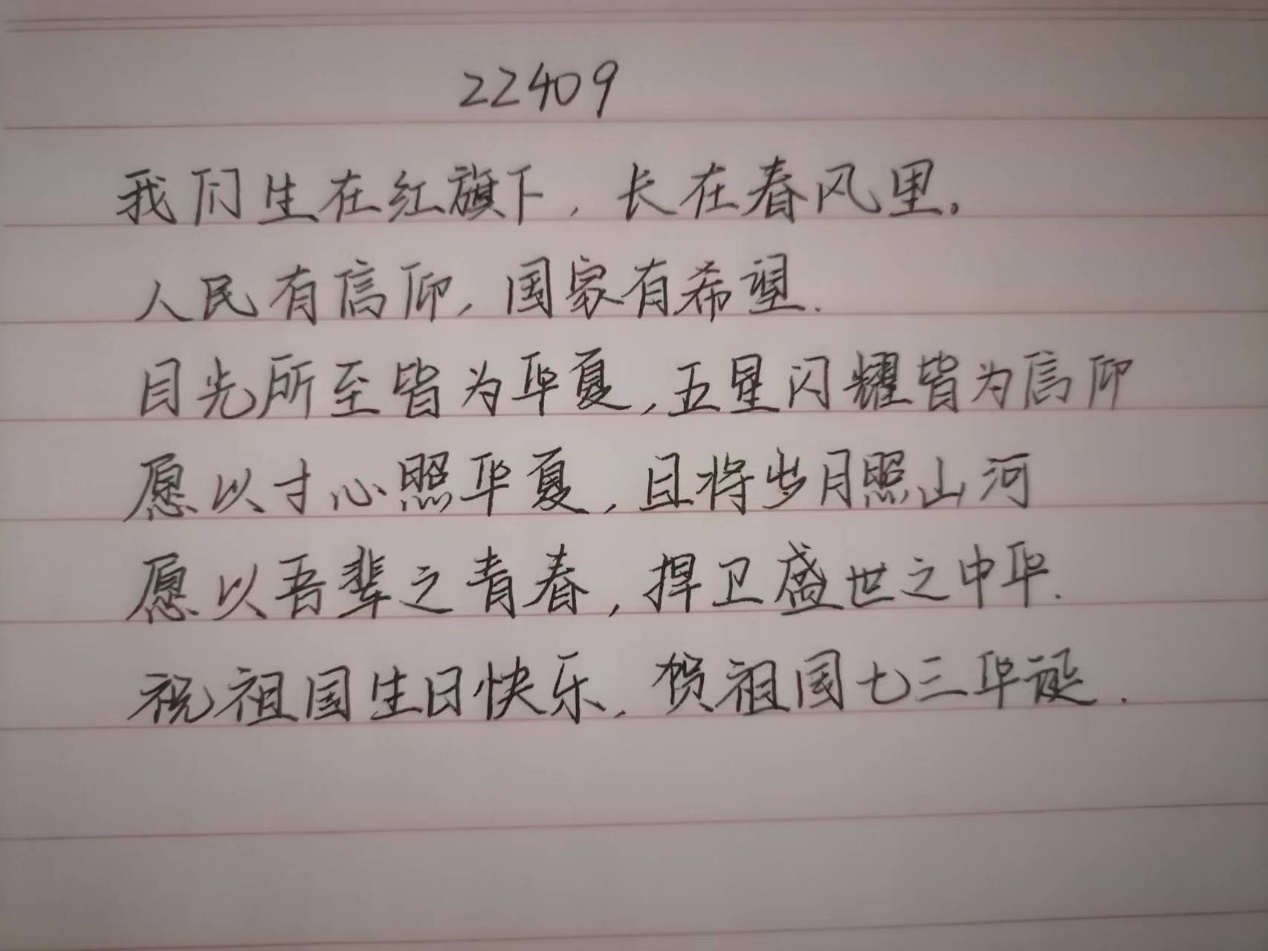 22409
我们生在红旗下，长在春风里。
人民有信仰，国家有希望.
目光所至皆为华夏，五星闪耀皆为信仰
愿以寸心照华夏，且将岁月照山河
愿以吾辈之青春，捍卫盛世之中华.
祝祖国生日快乐，贺祖国七三华诞.